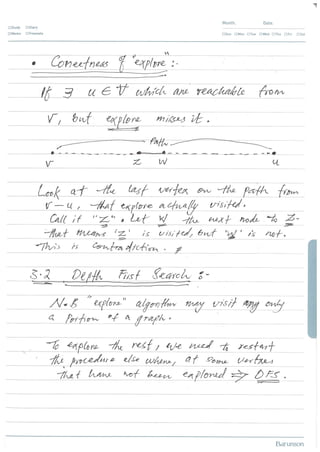 • Correctness of "explore" :-
If ∃ u ∈ V which are reachable from
v, but explore misses it.
Path
v z w u
Look at the last vertex on the path from
v - u, that explore actually visited.
Call it "z". Let w the next node to z.
that means 'z' is visited, but 'w' is not.
This is contradiction.
3.2 Depth First Search :-
N.B "explore" algorithm may visit any only
a portion of a graph.
To explore the rest, we need to restart
the procedure else where, at some vertex
that have not been explored ⇒ DFS.
Month: Date:
Barunson